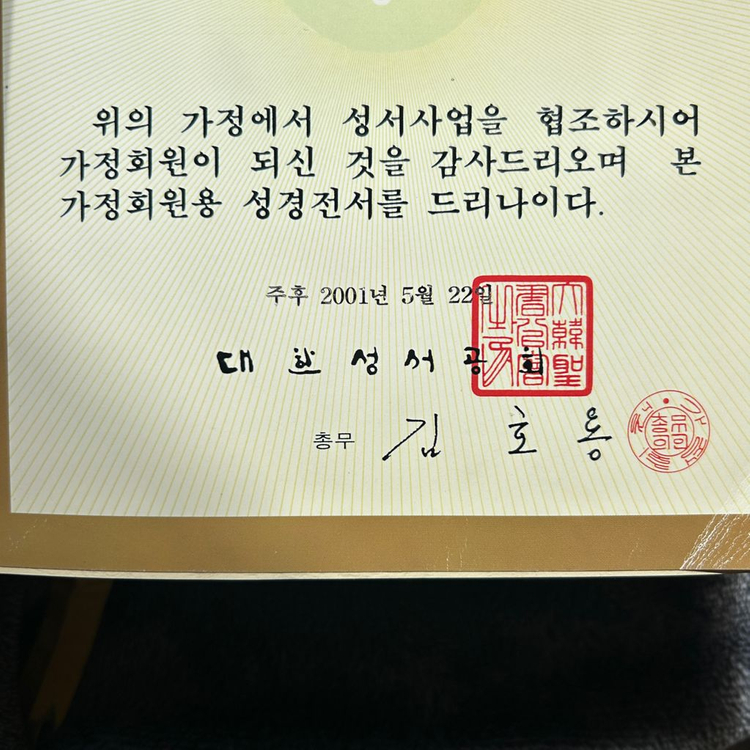 위의 가정에서 성서사업을 협조하시어
가정회원이 되신 것을 감사드리오며 본
가정회원용 성경전서를 드리나이다.
주후 2001년 5월 22일
대한성서공회
총무 김호용